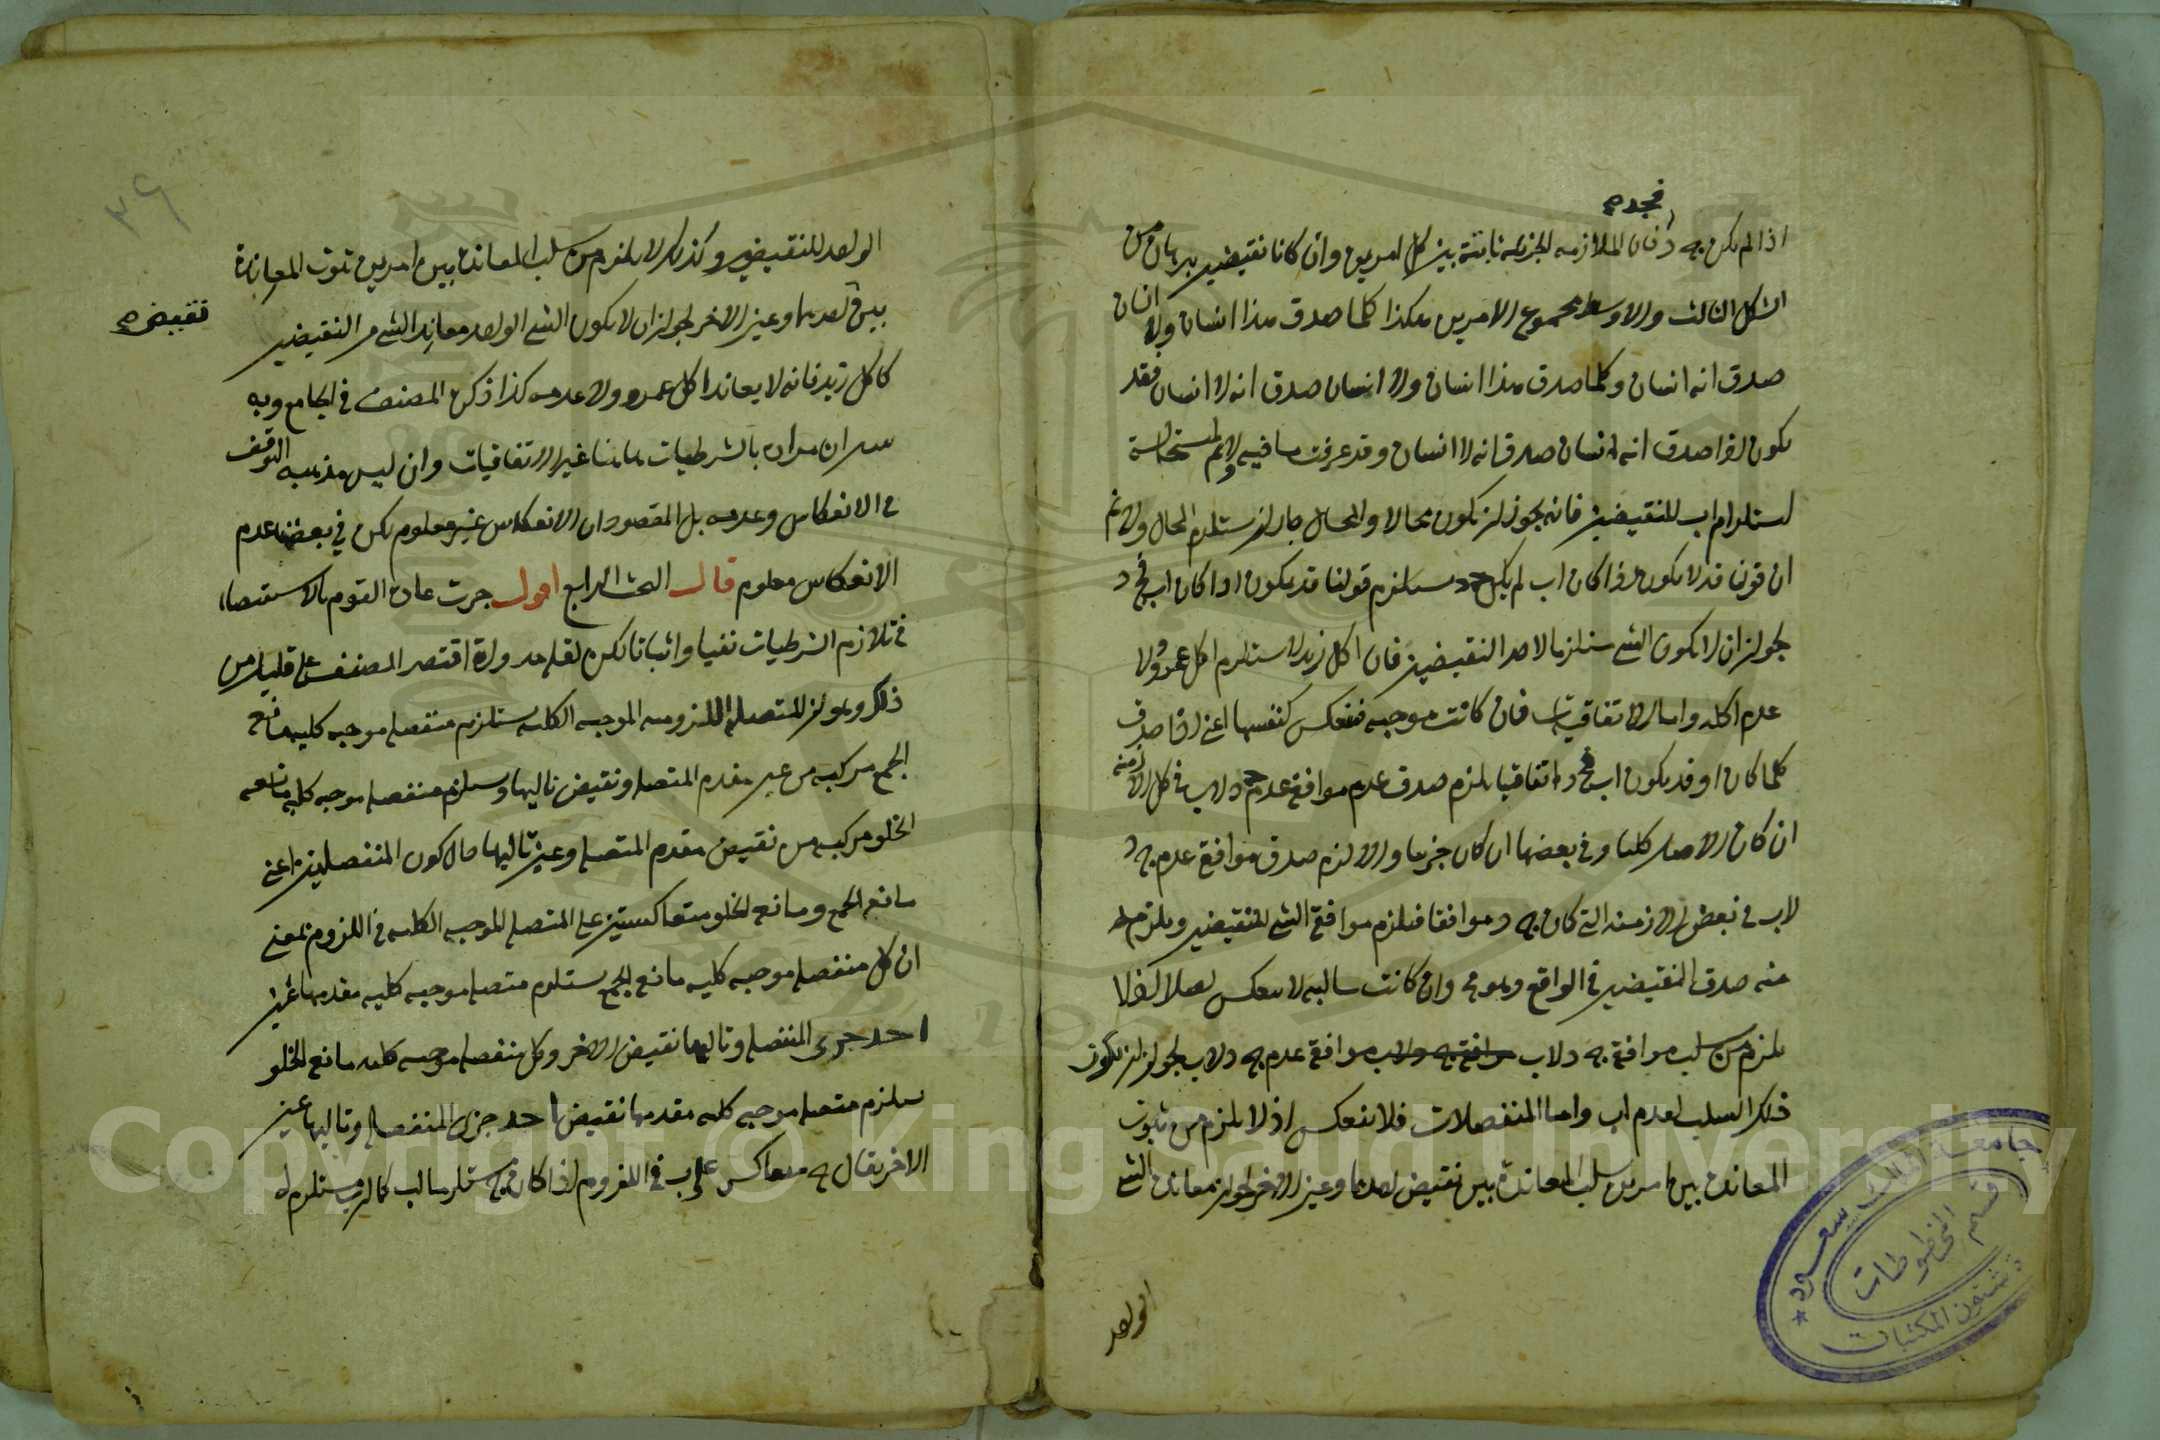 اذا لم يكن جه د فان الملازمه الجزئيه ثابتة بين كل امرين وان كانا نقيضين ببرهان من
الشكل الثالث والاوسط مجموع الامرين هكذا كلما صدق هذا انسان ولا انسان
صدق انه انسان وكلما صدق هذا انسان ولا انسان صدق انه لا انسان فقد
يكون اذا صدق انه انسان صدق انه لا انسان وقد عرفت ما فيه ولانم استحالة
استلزام اب للنقيضين فانه يجوز ان يكون محالا والمحال جاز ان يستلزم المحال ولانم
ان قولنا قد لا يكون اذا كان اب لم يكن جد يستلزم قولنا قد يكون اذا كان اب فج د
لجواز ان لا يكون الشي مستلزما لاحد النقيضين فان اكل زيد لا يستلزم اكل عمرو ولا
عدم اكله واما الاتفاقيات فان كانت موجبه فتنعكس كنفسها اعني اذا صدق
كلما كان او قد يكون اب فج د اتفاقيا يلزم صدق عدم موافقة عدم ج د لاب في كل الازمنه
ان كان الاصل كليا وفي بعضها ان كان جزئيا والا لزم صدق موافقة عدم جه د
لاب في بعض الازمنه التي كان جه د موافقا فيلزم موافقة الشي للنقيضين ويلزم
منه صدق النقيضين في الواقع وهو مح وان كانت سالبه لا تنعكس اصلا اذ لا
يلزم من سلب موافقة جه د لاب موافقة عدم جه د لاب لجواز ان يكون
ذلك السلب لعدم اب واما المنفصلات فلا تنعكس اذ لا يلزم من ثبوت
المعاندة بين امرين سلب المعاندة بين نقيض احدهما وعين الاخر لجواز معاندة الشي
الواحد
الواحد للنقيضين وكذلك لا يلزم من سلب المعاندة بين امرين ثبوت المعاندة
بين احدهما وعين الاخر لجواز ان لا يكون الشي الواحد معاندا لشي من النقيضين
نقيض
كاكل زيد فانه لا يعاند اكل عمرو ولا عدمه كذا ذكره المصنف في الجامع وبه
ان مراده بالشرطيات هاهنا غير الاتفاقيات وان ليس مذهبه التوقف
في الانعكاس وعدمه بل المقصود ان الانعكاس غير معلوم لكن في بعضها عدم
الانعكاس معلوم قال البحث الرابع اقول جرت عادة القوم بالاستقصاء
في تلازم الشرطيات نفيا واثباتا لكن لقلة جدواه اقتصر المصنف على قليل من
ذلك وهو ان المتصلة اللزوميه الموجبه الكليه يستلزم منفصله موجبه كليه مانعة
الجمع مركبه من عين مقدم المتصله ونقيض تاليها ويستلزم منفصله موجبه كليه مانعه
الخلو مركبه من نقيض مقدم المتصله وعين تاليها حال كون المنفصلتين اعني
مانعه الجمع ومانعه الخلو متعاكستين على المتصله الموجبه الكليه في اللزوم بمعني
ان كل منفصله موجبه كليه مانعه الجمع يستلزم متصله موجبه كليه مقدمها عين
احد جزئي المنفصله وتاليها نقيض الاخر وكل منفصله موجبه كليه مانعه الخلو
يستلزم متصله موجبه كليه مقدمها نقيض احد جزئي المنفصله وتاليها عين
الاخر يقال جه متعاكس على ب في اللزوم اذا كان جه مستلزما لب كما ان ب مستلزم له
٣٩
جامعة الملك سعود
قسم المخطوطات
شئون المكتبات
Copyright © King Saud University